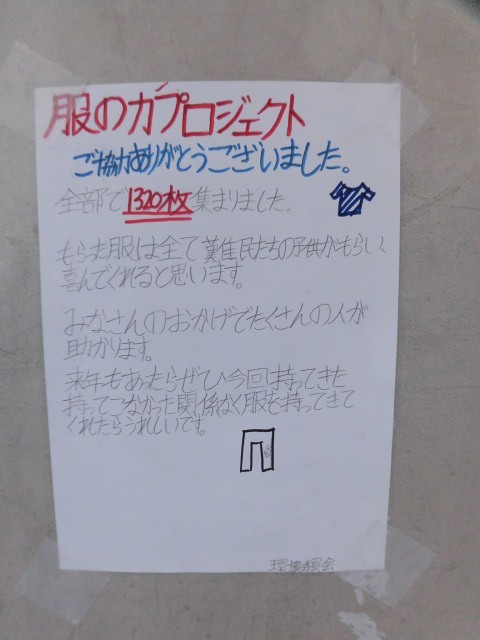 服の力プロジェクト
ご協力ありがとうございました。
全部で1320枚集まりました。
もらった服は全て難民たちの子供がもらい
喜んでくれると思います。
みなさんのおかげでたくさんの人が
助かります。
来年もあったらぜひ今回持ってきた
持ってこなかった関係なく服を持ってきて
くれたらうれしいです。
環境委員会